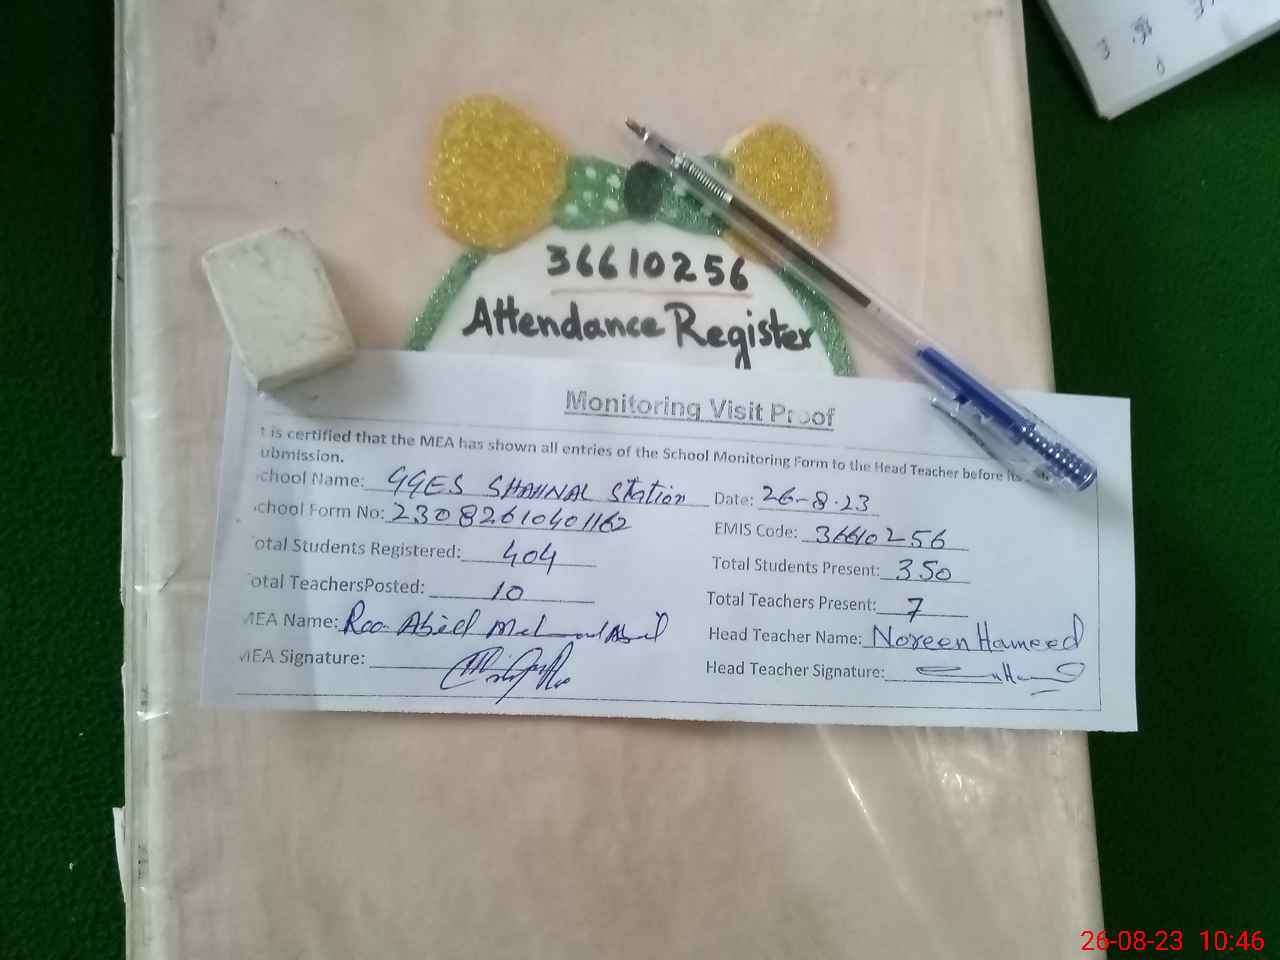 36610256
Attendance Register
Monitoring Visit Proof
t is certified that the MEA has shown all entries of the School Monitoring Form to the Head Teacher before its
ubmission.
chool Name: GGES SHAHNAL Station Date: 26-8-23
chool Form No: 23082610401162 EMIS Code: 36610256
otal Students Registered: 404 Total Students Present: 350
otal TeachersPosted: 10 Total Teachers Present: 7
MEA Name: Rao Abid Head Teacher Name: Noreen Hameed
MEA Signature: Head Teacher Signature:
26-08-23 10:46